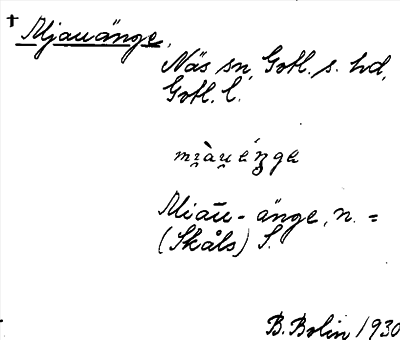 † Mjauänge,
Näs sn, Gotl. s. hd,
Gotl. l.
mi̯àu̯éŋge
Miau - änge, n. =
(Skåls) S.
B. Bolin 1930